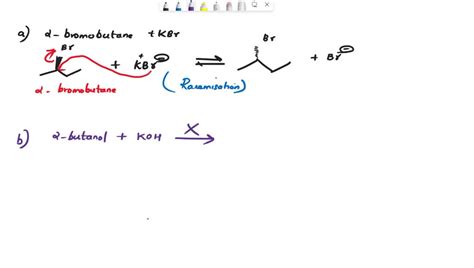 a) 2-bromobutane + KBr
Br + K⁺Br⊖ ⇌ Br + Br⊖
2-bromobutane (Racemisation)
b) 2-butanol + KOH X